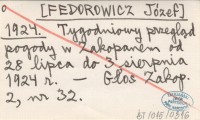 [FEDOROWICZ Józef]
1924. Tygodniowy przegląd
pogody w Zakopanem od
28 lipca do 3 sierpnia
1924 r. — Głos Zakop.
2, nr 32.